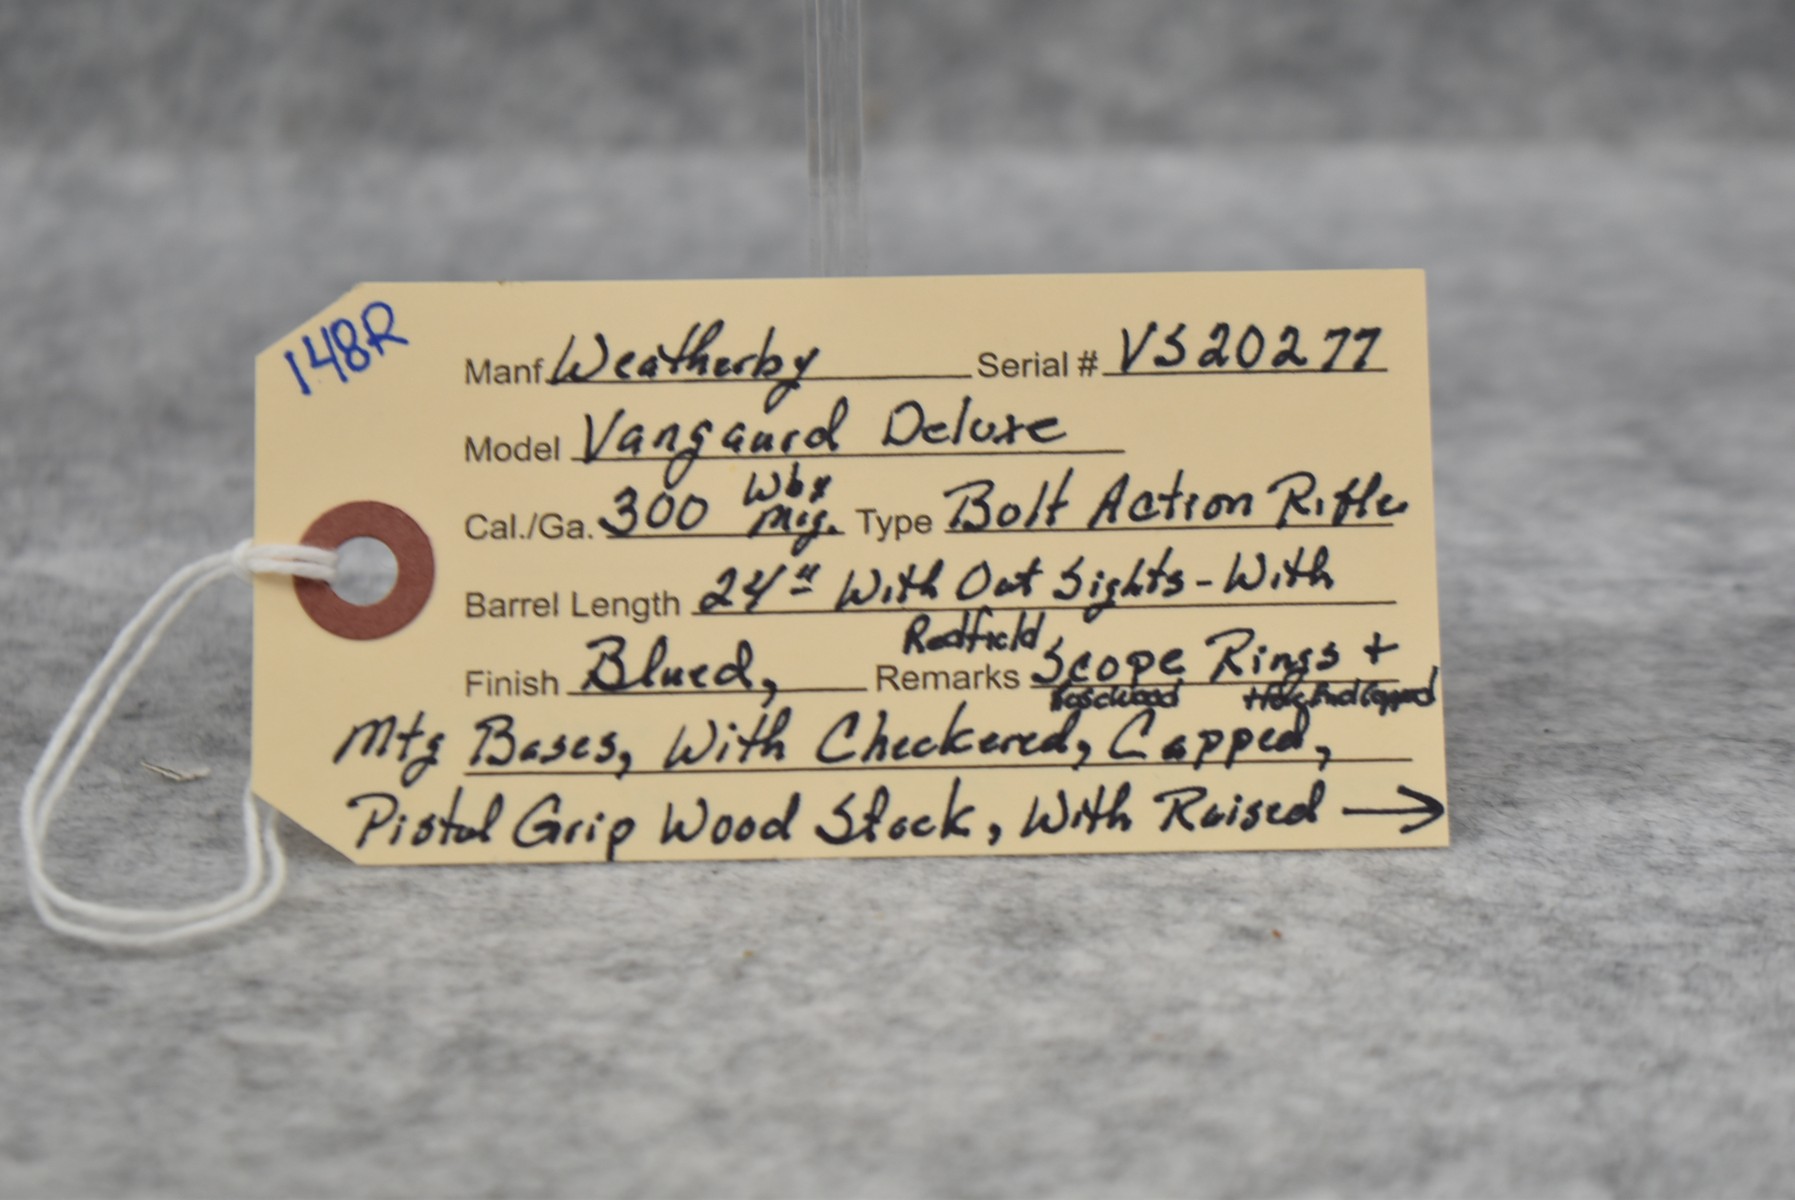 148R
Manf. Weatherby Serial # VS20277
Model Vangaurd Deluxe
Wby
Cal./Ga. 300 Mig. Type Bolt Action Rifle
Barrel Length 24" With Out Sights - With
Redfield
Finish Blued, Remarks Scope Rings +
Rosewood
Mtg Bases, With Checkered, Capped,
Pistol Grip Wood Stock, With Raised →